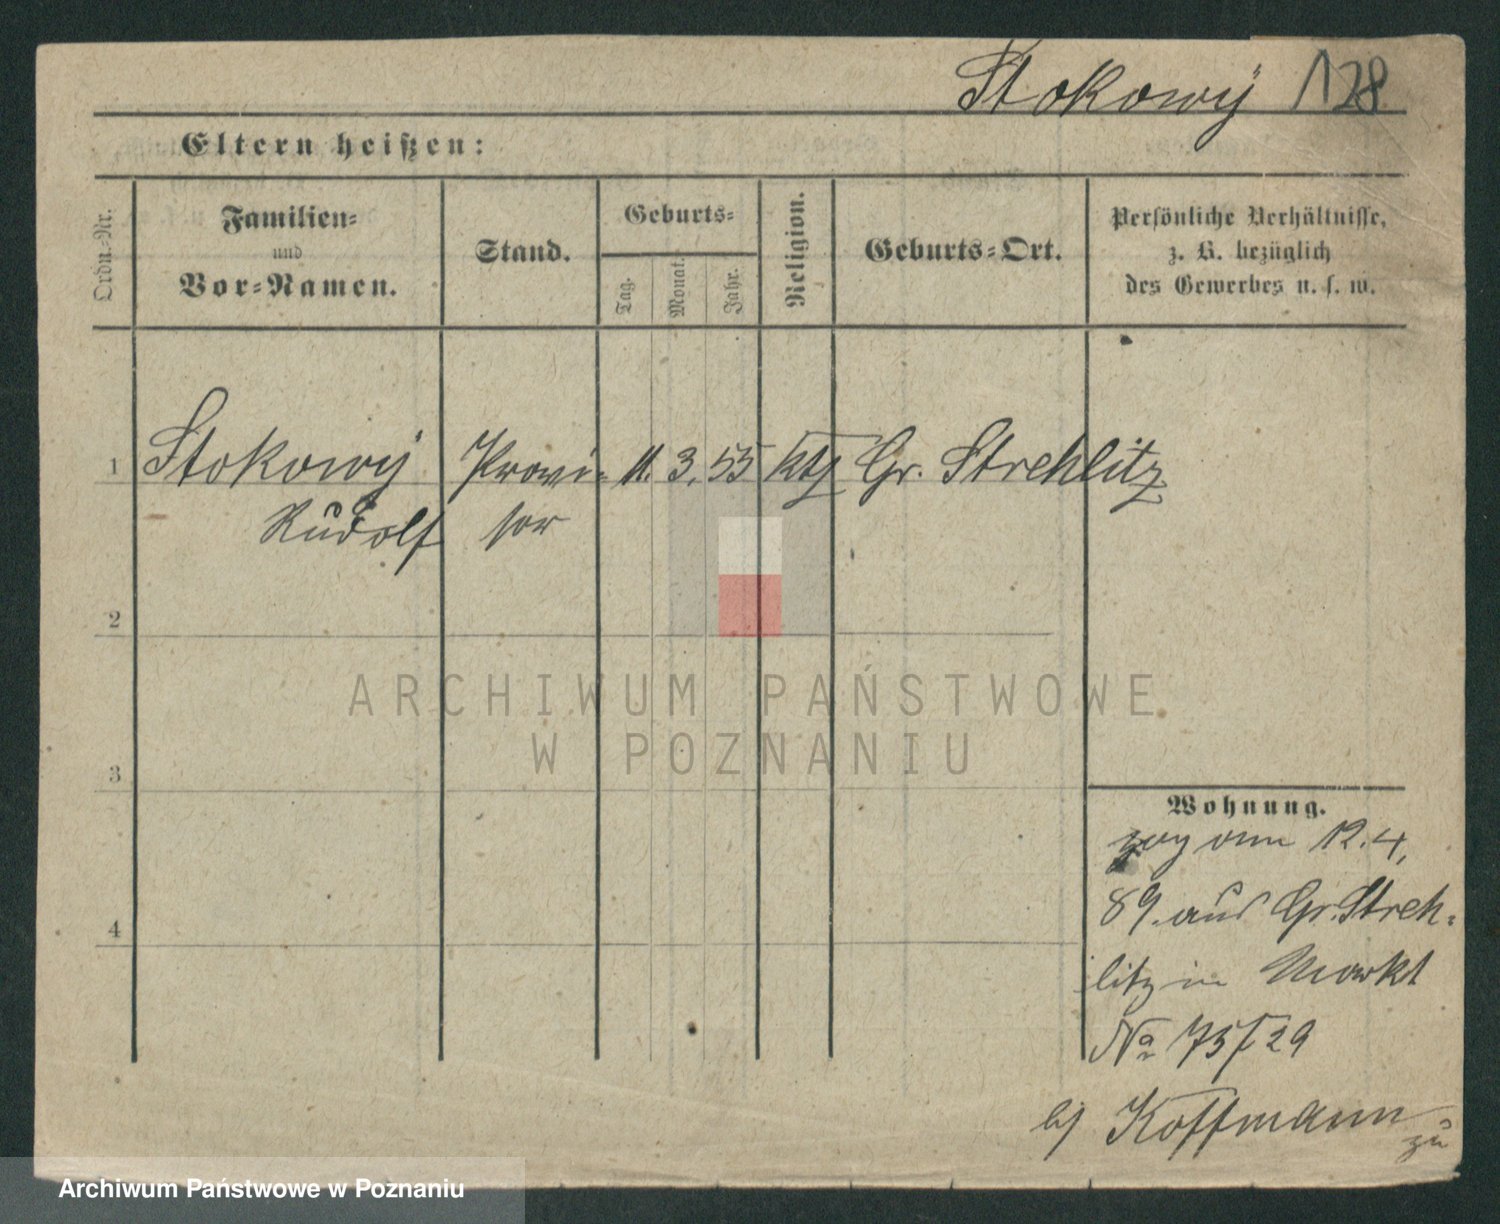 Stokowÿ 128
Eltern heißen:
Ordn.-Nr.
Familien-
und
Vor-Namen.
Stand.
Geburts-
Tag.
Monat.
Jahr.
Religion.
Geburts-Ort.
Persönliche Verhältnisse,
z. B. bezüglich
des Gewerbes u. s. w.
1 Stokowÿ Provi- 11. 3. 55 kth Gr. Strehlitz
Rudolf sor
2
3
4
Wohnung.
zog am 12.4.
89. aus Gr. Streh-
litz in Markt
No 75/29
bj Koffmann
zu
ARCHIWUM PAŃSTWOWE
W POZNANIU
Archiwum Państwowe w Poznaniu